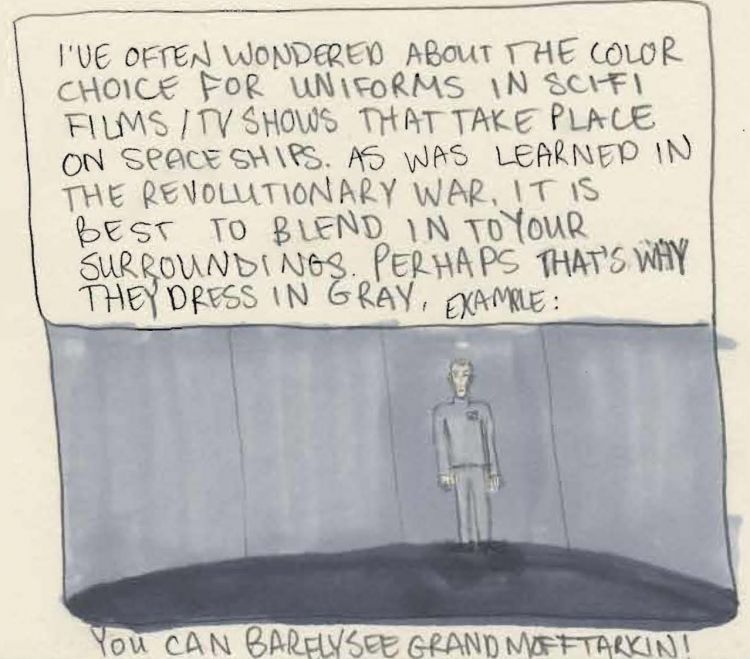 I'VE OFTEN WONDERED ABOUT THE COLOR
CHOICE FOR UNIFORMS IN SCI-FI
FILMS / TV SHOWS THAT TAKE PLACE
ON SPACE SHIPS. AS WAS LEARNED IN
THE REVOLUTIONARY WAR, IT IS
BEST TO BLEND IN TO YOUR
SURROUNDINGS. PERHAPS THAT'S WHY
THEY DRESS IN GRAY. EXAMPLE:
YOU CAN BARELY SEE GRAND MOFF TARKIN!